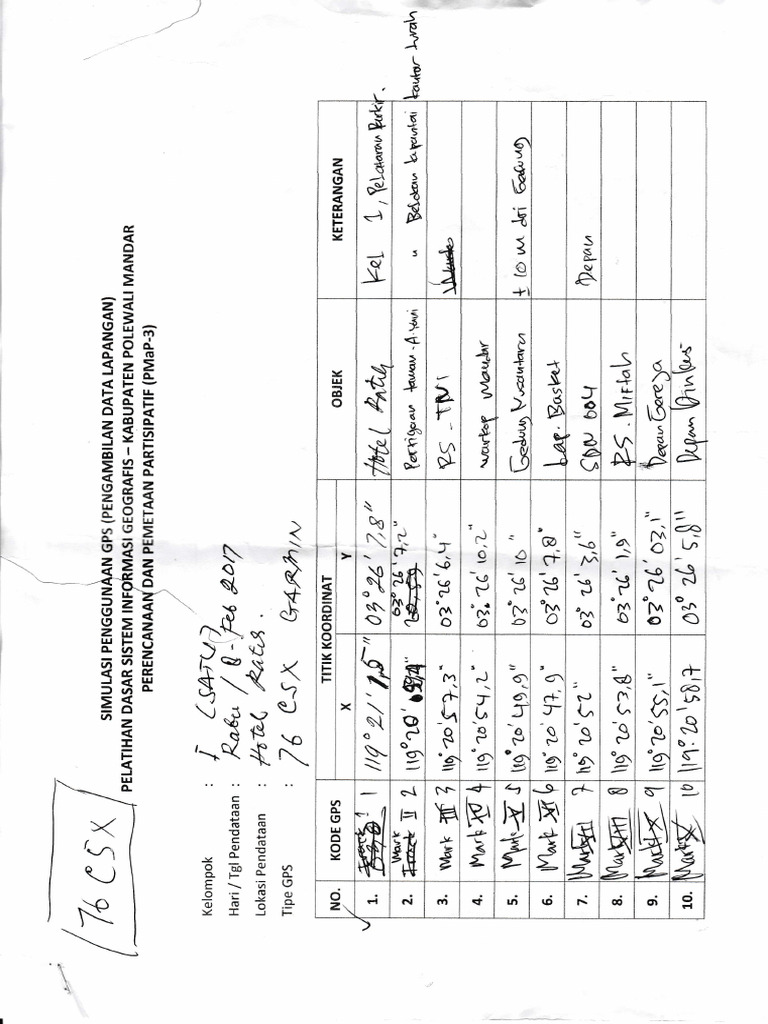 76 CSX
SIMULASI PENGGUNAAN GPS (PENGAMBILAN DATA LAPANGAN)
PELATIHAN DASAR SISTEM INFORMASI GEOGRAFIS – KABUPATEN POLEWALI MANDAR
PERENCANAAN DAN PEMETAAN PARTISIPATIF (PMaP-3)
Kelompok : I (SATU)
Hari / Tgl Pendataan : Rabu / 8 - Feb 2017
Lokasi Pendataan : Hotel Ratih.
Tipe GPS : 76 CSX GARMIN
NO. KODE GPS TITIK KOORDINAT OBJEK KETERANGAN
X Y
1. 1 119° 21' 1,5" 03° 26' 7,8" Hotel Ratih Kel 1, Pelataran Parkir.
2. Mark II 2 119° 20' 03° 26' 7,2" Pertigaan taman - A. Yani " Belokan
3. Mark III 3 119° 20' 57,3" 03° 26' 6,4" RS - TNI
4. Mark IV 4 119° 20' 54,2" 03° 26' 10,2" warkop Mandar
5. Mark V 5 119° 20' 49,9" 03° 26' 10" Gedung Nusantara ± 10 m dri Gedung
6. Mark VI 6 119° 20' 47,9" 03° 26' 7,8" Lap. Basket
7. Mark VII 7 119° 20' 52" 03° 26' 3,6" SDN 004 Depan
8. Mark VIII 8 119° 20' 53,8" 03° 26' 1,9" RS. Miftah
9. Mark IX 9 119° 20' 55,1" 03° 26' 03,1" Depan Gereja
10. Mark X 10 119° 20' 58,7 03° 26' 5,8" Depan Dinkes